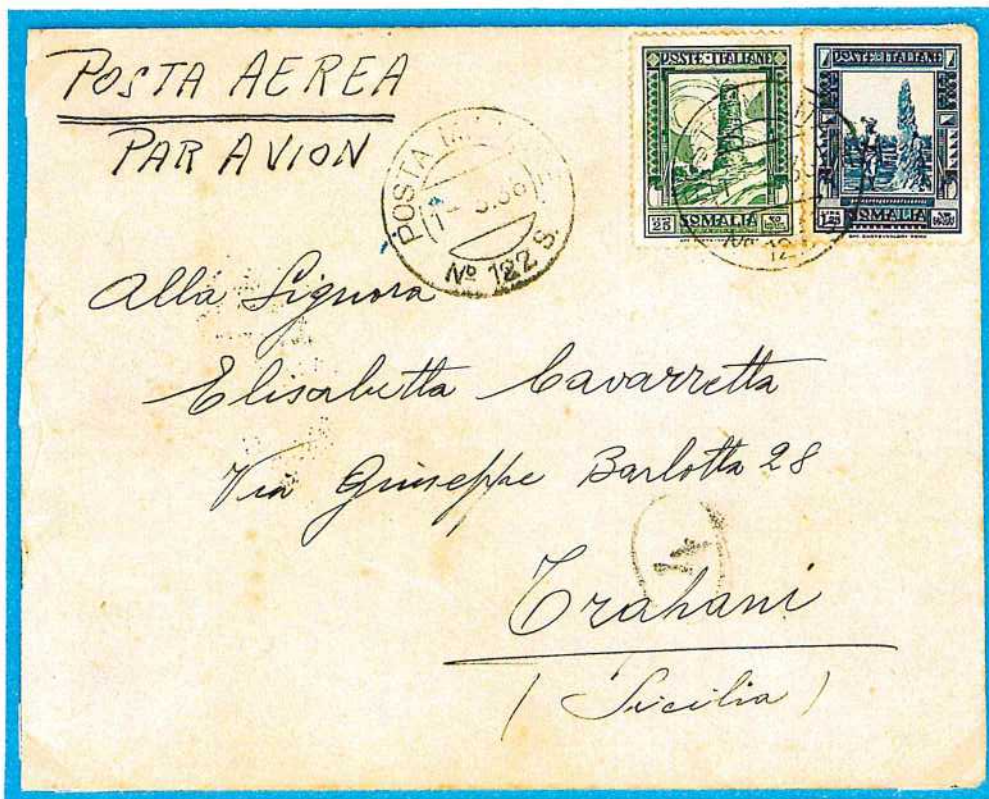 POSTA AEREA
PAR AVION
POSTA
Nº 122 S.
POSTE·ITALIANE
25 SOMALIA
POSTE·ITALIANE
1,25 SOMALIA
Alla Signora
Elisabetta Cavarretta
Via Giuseppe Barlotta 28
Trapani
(Sicilia)